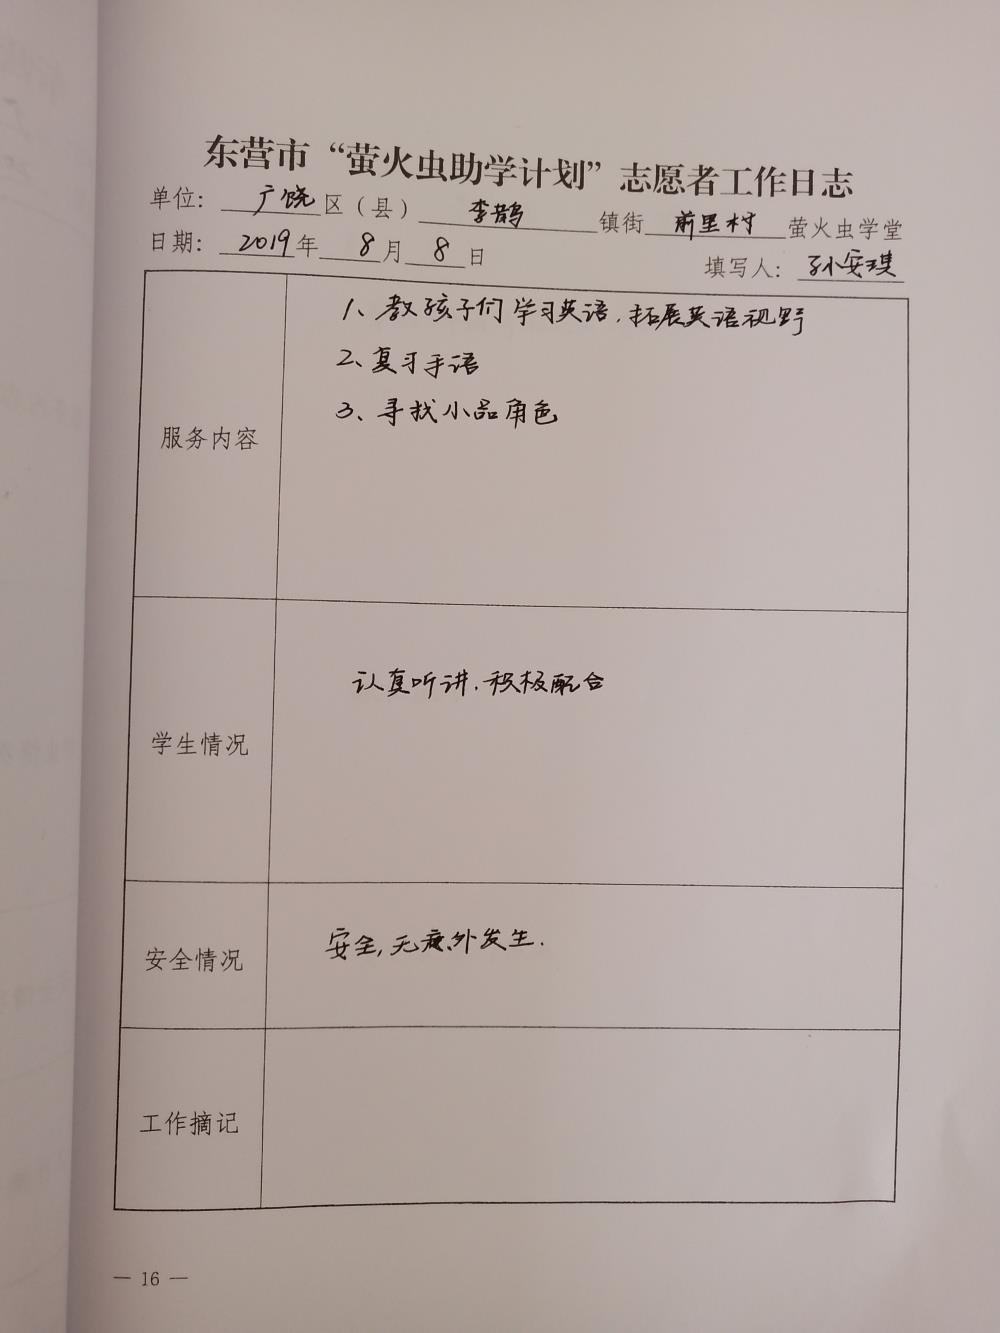 东营市“萤火虫助学计划”志愿者工作日志
单位：广饶区（县）李鹊镇街前里村萤火虫学堂
日期：2019年8月8日
填写人：孙安琪
服务内容
1、教孩子们学习英语，拓展英语视野
2、复习手语
3、寻找小品角色
学生情况
认真听讲，积极配合
安全情况
安全，无意外发生.
工作摘记
— 16 —